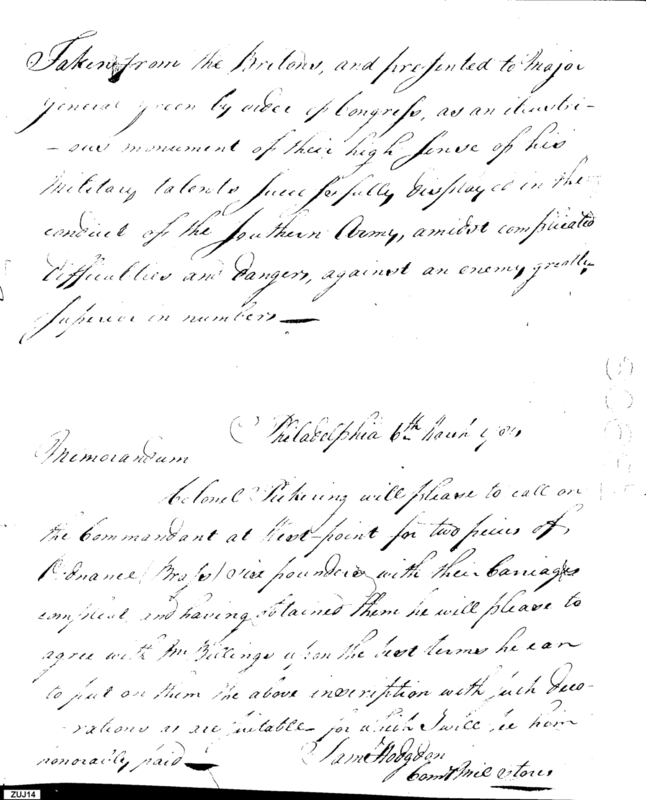 Taken from the Britons, and presented to Major
General Green by order of Congress, as an illustri-
-ous monument of their high sense of his
Military talents successfully displayed in the
conduct of the Southern Army, amidst complicated
difficulties and dangers, against an enemy greatly
superior in numbers —
Philadelphia 6th March
Memorandum
Colonel Pickering will please to call on
the Commandant at West-point for two pieces of
Ordnance (Brass) six pounders with their Carriages
compleat and having obtained them he will please to
agree with Mr Billings upon the best terms he can
to put on them the above inscription with such deco-
-rations as are suitable for which I will see him
honorably paid —
Saml Hodgdon
Comy Mil stores
ZUJ14